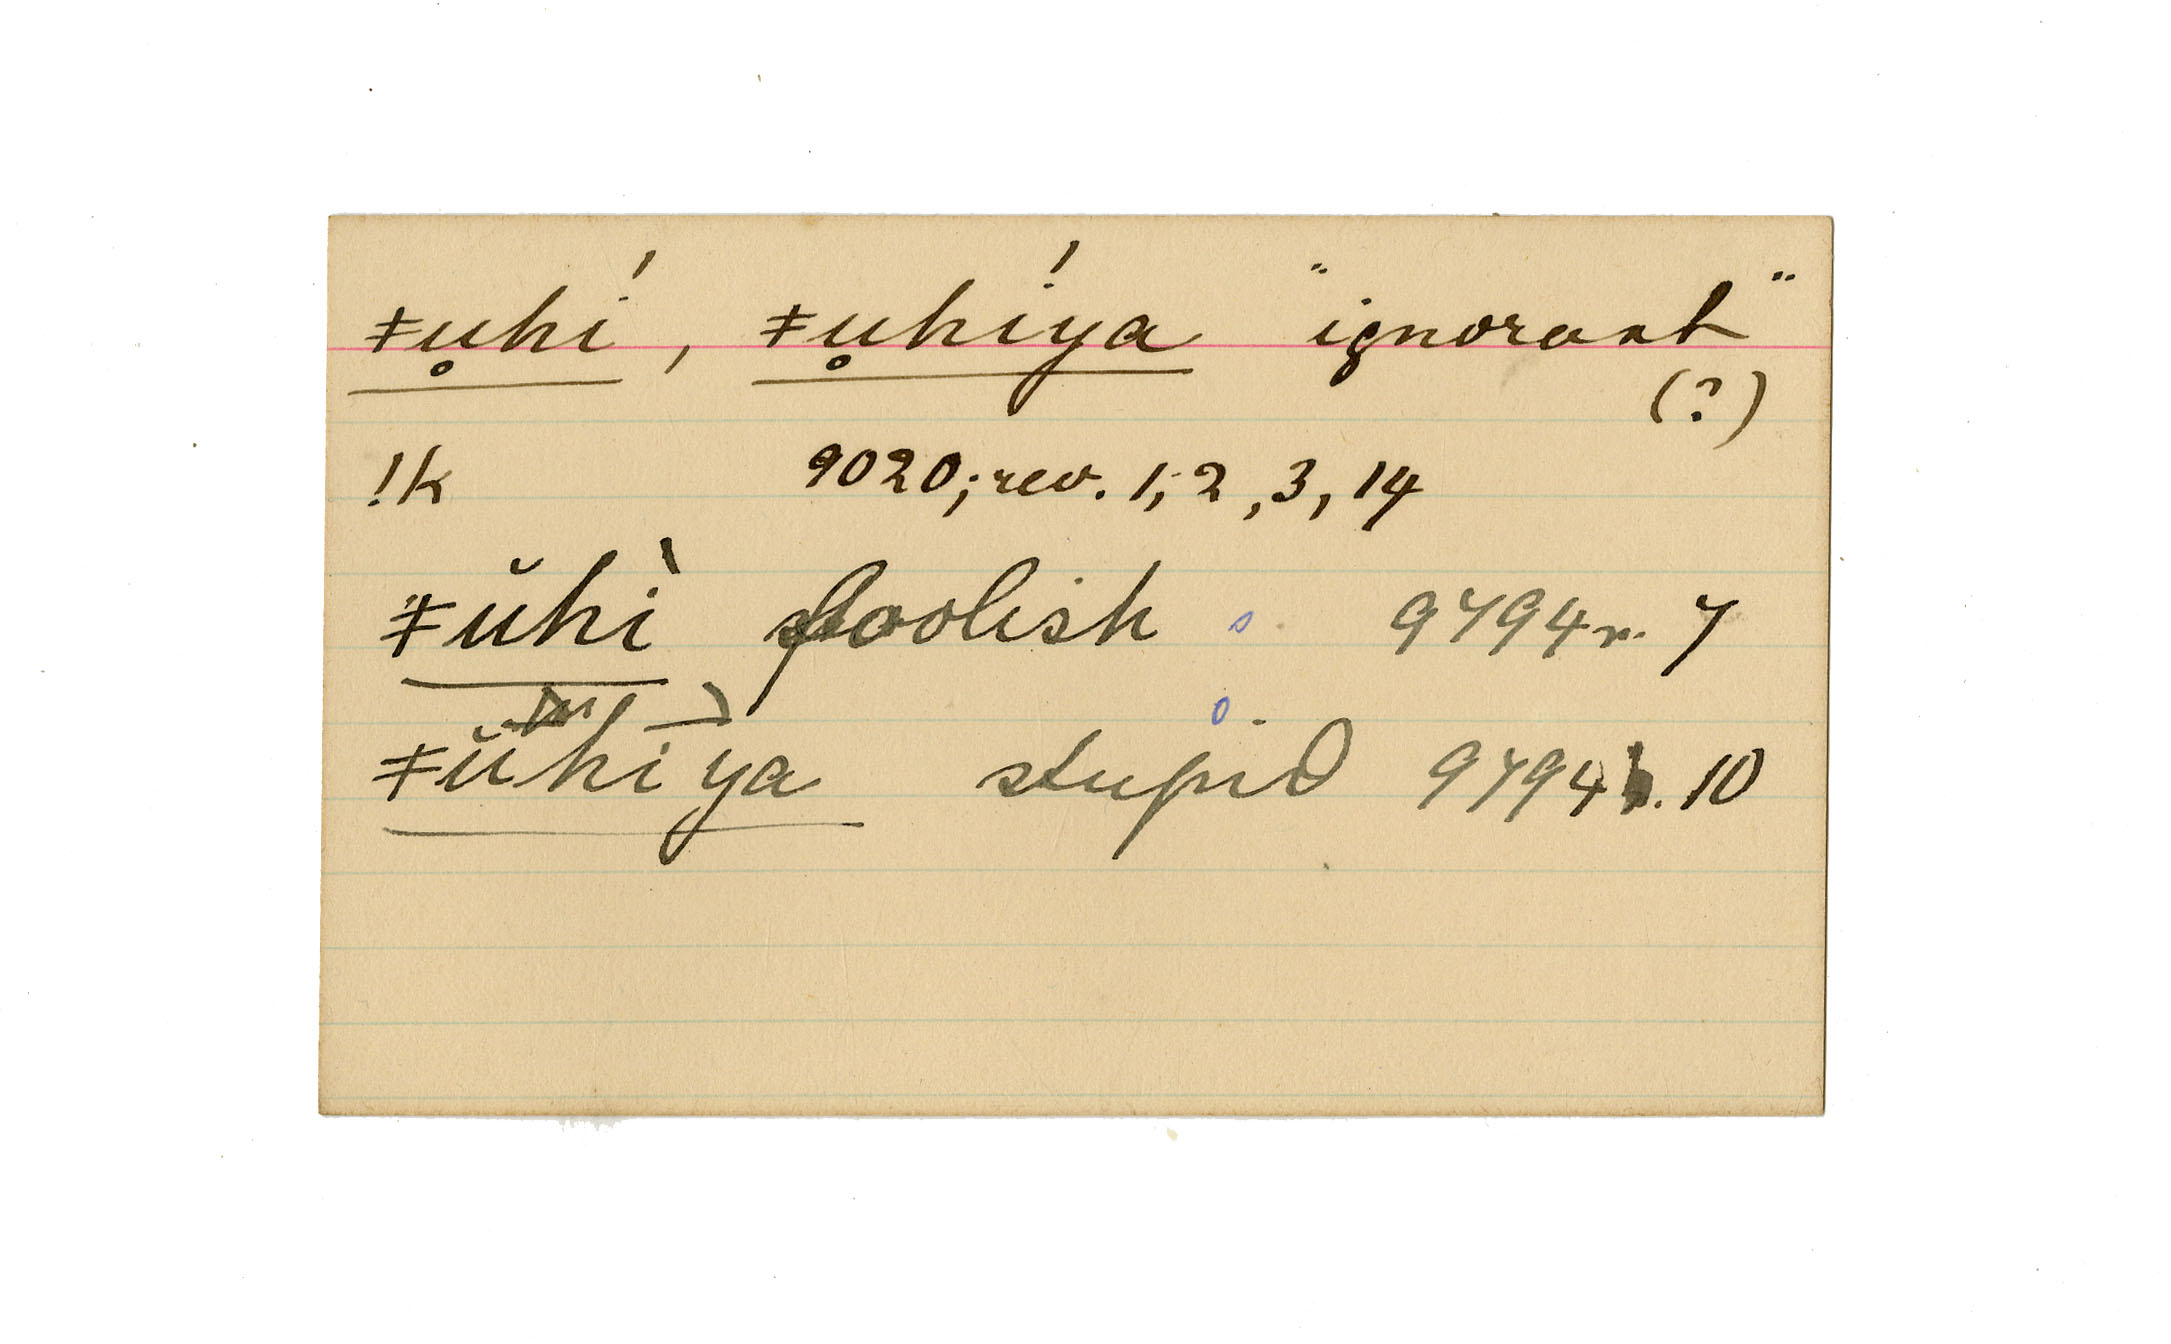 ǂu̥hí, ǂu̥híya "ignorant"
(?)
!k 9020; rev. 1; 2, 3, 14
ǂŭhì foolish 9794r. 7
ǂŭhiya stupid 9794 . 10